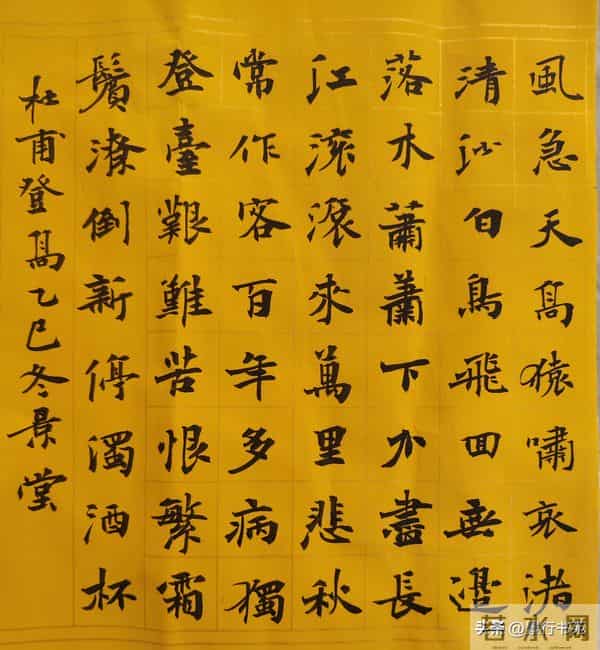 風急天高猿嘯哀渚
清沙白鳥飛回無邊
落木蕭蕭下不盡長
江滾滾來萬里悲秋
常作客百年多病獨
登臺艱難苦恨繁霜
鬢潦倒新停濁酒杯
杜甫登高乙巳冬景堂
头条
水网